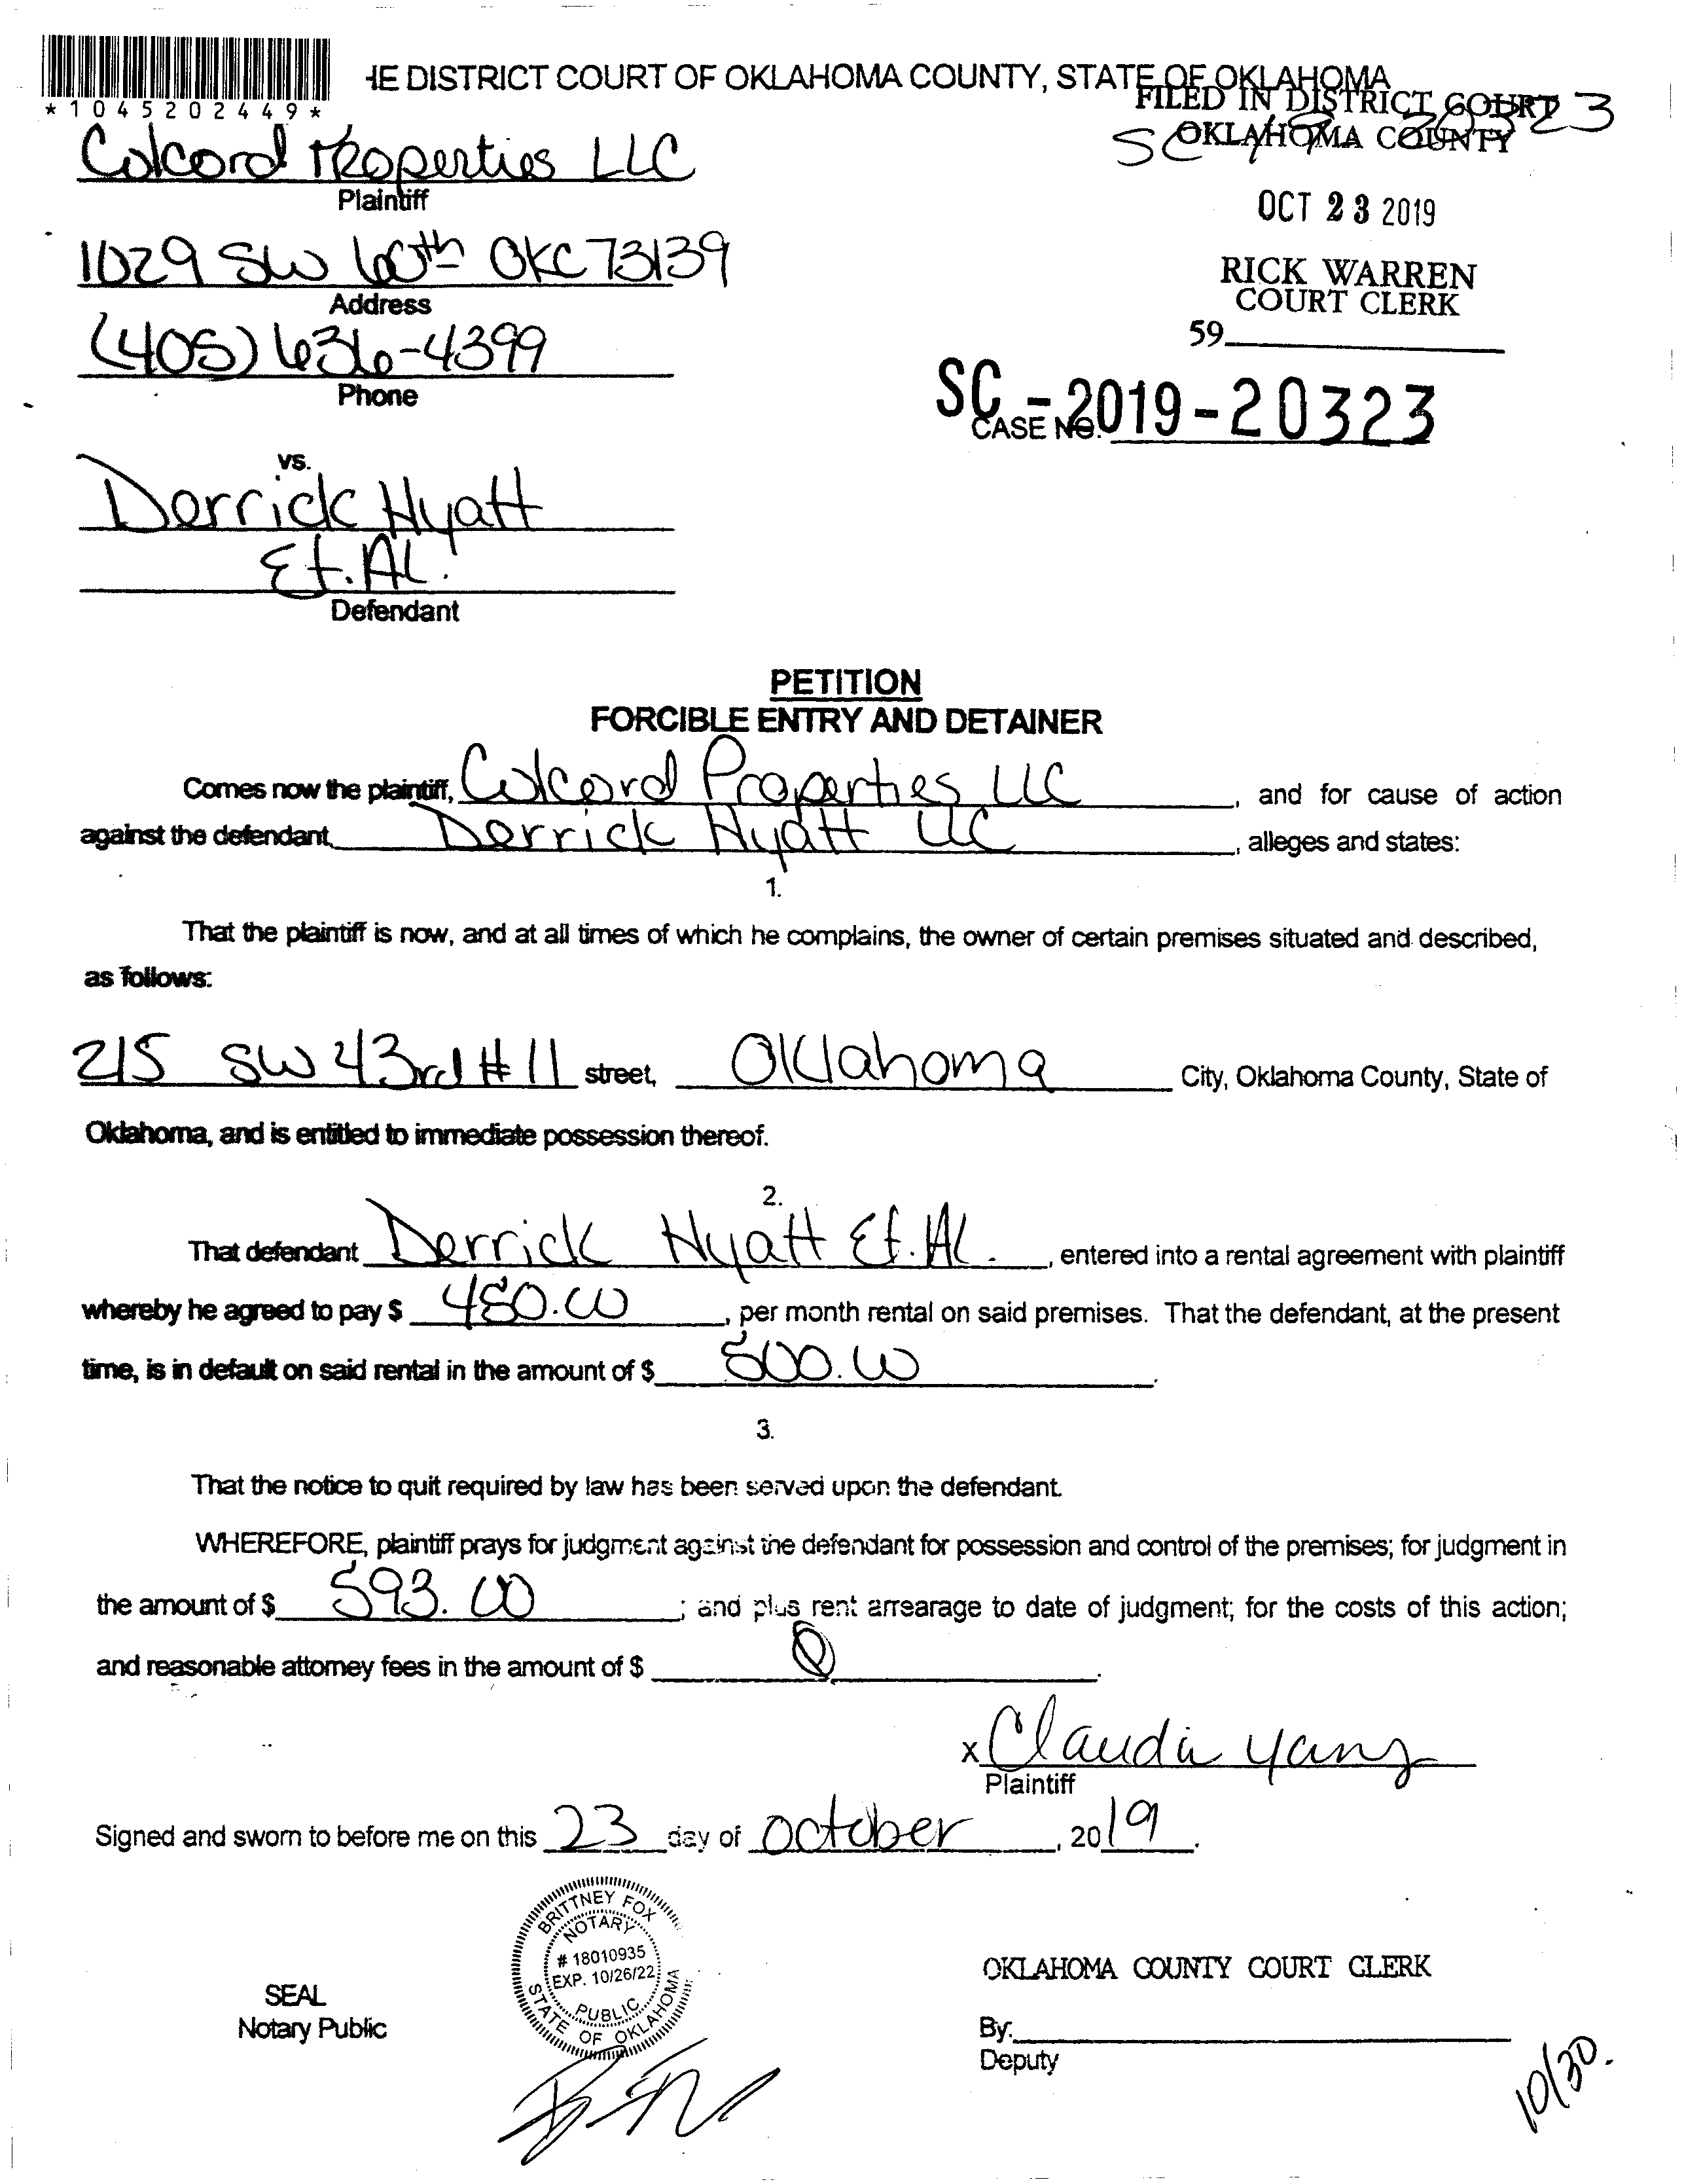 *1045202449*
HE DISTRICT COURT OF OKLAHOMA COUNTY, STATE OF OKLAHOMA
FILED IN DISTRICT COURT
OKLAHOMA COUNTY
SC 19 20323
Colcord Properties LLC
Plaintiff
OCT 23 2019
1029 SW 60th OKC 73139
Address
RICK WARREN
COURT CLERK
(405) 636-4399
Phone
59
SC-2019-20323
CASE NO.
vs.
Derrick Hyatt
Et. Al.
Defendant
PETITION
FORCIBLE ENTRY AND DETAINER
Comes now the plaintiff, Colcord Properties LLC, and for cause of action
against the defendant, Derrick Hyatt LLC, alleges and states:
1.
That the plaintiff is now, and at all times of which he complains, the owner of certain premises situated and described,
as follows:
215 SW 43rd #11 street, Oklahoma City, Oklahoma County, State of
Oklahoma, and is entitled to immediate possession thereof.
2.
That defendant Derrick Hyatt Et. Al., entered into a rental agreement with plaintiff
whereby he agreed to pay $ 480.00, per month rental on said premises. That the defendant, at the present
time, is in default on said rental in the amount of $ 500.00.
3.
That the notice to quit required by law has been served upon the defendant.
WHEREFORE, plaintiff prays for judgment against the defendant for possession and control of the premises; for judgment in
the amount of $ 593.00; and plus rent arrearage to date of judgment; for the costs of this action;
and reasonable attorney fees in the amount of $ 0.
x Claudia Yang
Plaintiff
Signed and sworn to before me on this 23 day of October, 2019.
BRITTNEY FOX
NOTARY
# 18010935
EXP. 10/26/22
PUBLIC
STATE OF OKLAHOMA
SEAL
Notary Public
OKLAHOMA COUNTY COURT CLERK
By:
Deputy
10/30.